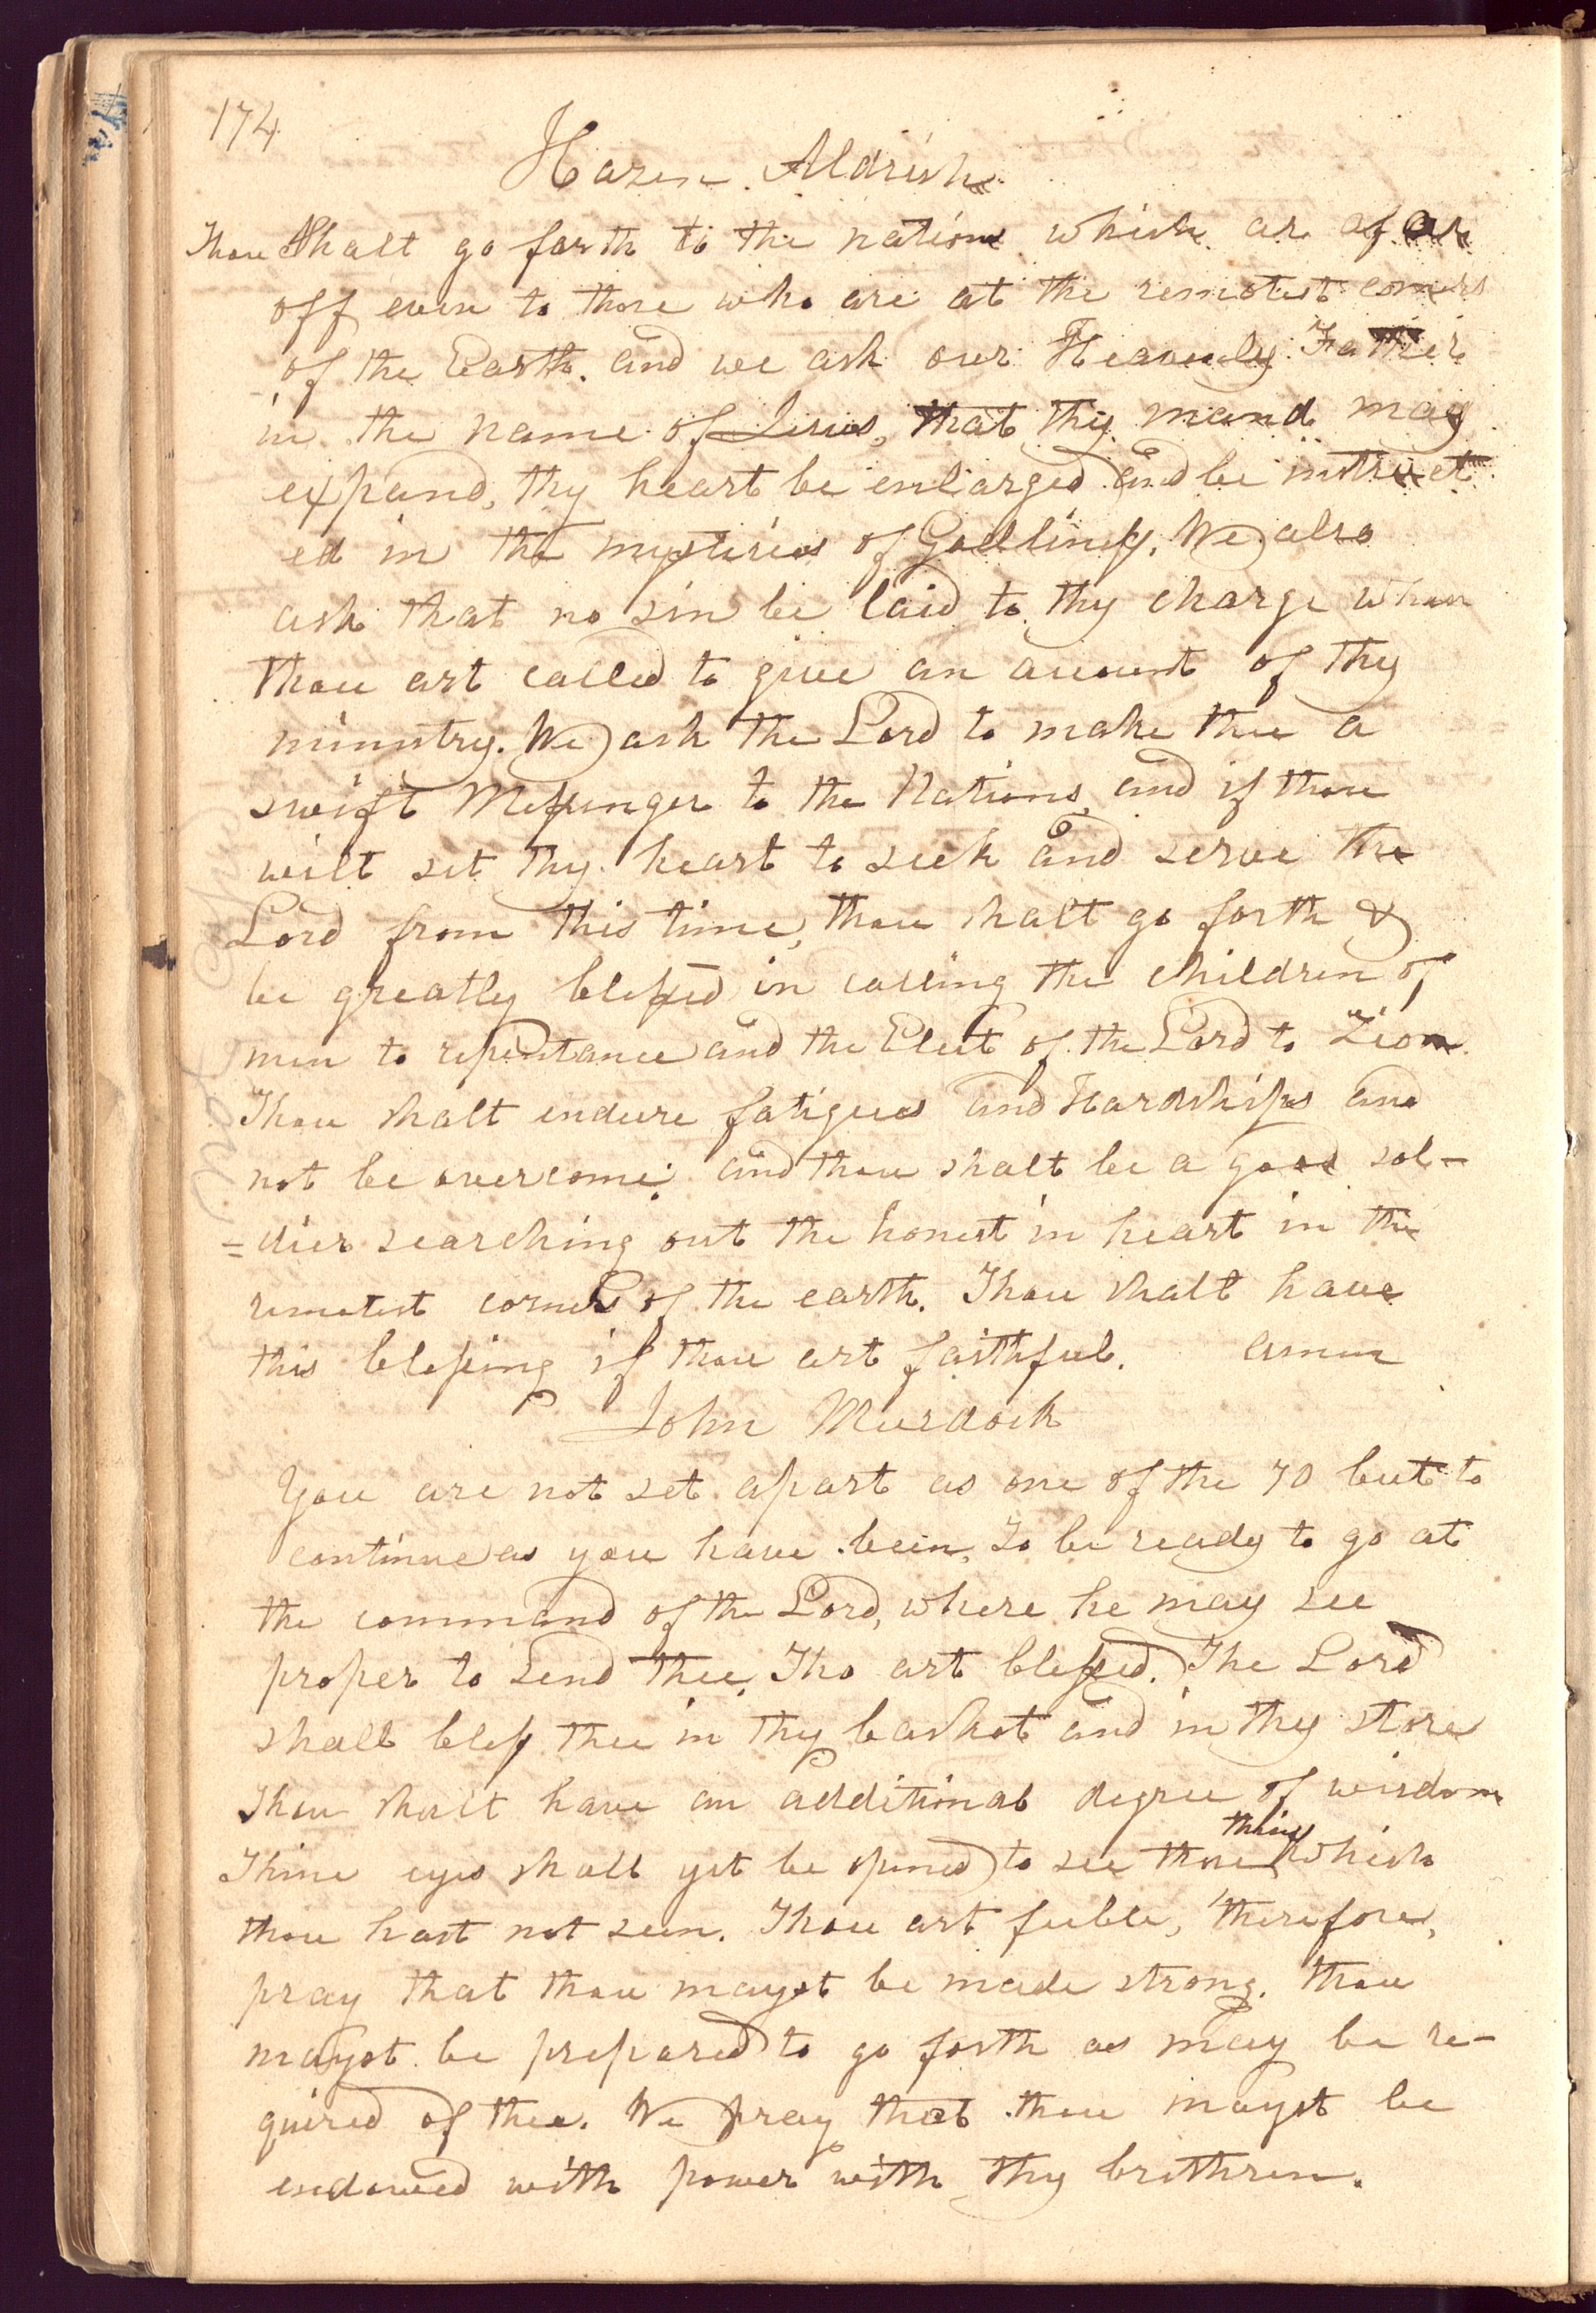 174
Hazen Aldrich
Thou shalt go forth to the nations which are afar
off even to those who are at the remotest corners
of the Earth. and we ask our Heavenly Father
in the name of Jesus, that thy mind may
expand, thy heart be enlarged and be instruct
ed in the mysteries of Godliness. We also
ask that no sin be laid to thy charge when
thou art called to give an account of thy
ministry. We ask the Lord to make thee a
swift Messenger to the Nations, and if thou
wilt set thy heart to seek and serve the
Lord from this time, thou shalt go forth &
be greatly blessed in calling the children of
men to repentance and the Elect of the Lord to Zion.
Thou shalt endure fatigues and Hardships and
not be overcome; and thou shalt be a good sol-
=dier searching out the honest in heart in the
remotest corners of the earth. Thou shalt have
this blessing if thou art faithful. amen
John Murdock
You are not set apart as one of the 70 but to
continue as you have been, To be ready to go at
the command of the Lord, where he may see
proper to send thee, Tho art blessed. The Lord
shall bless thee in thy basket and in thy store
Thou shalt have an additional degree of wisdom
thing
Thine eyes shall yet be opened to see those which
thou hast not seen. Thou art feeble, therefore,
pray that thou mayst be made strong. thou
mayst be prepared to go forth as may be re-
quired of thee. We pray that thou mayst be
endowed with power with thy brethren.